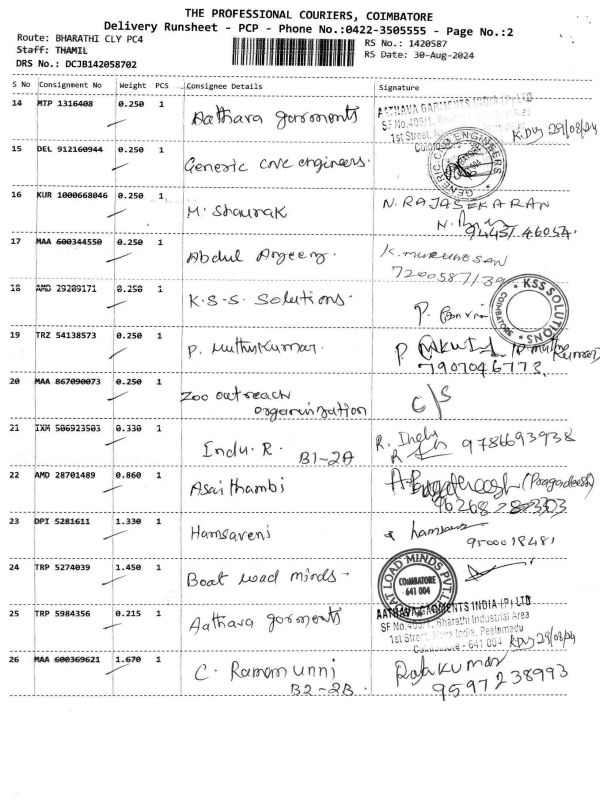 THE PROFESSIONAL COURIERS, COIMBATORE
Delivery Runsheet - PCP - Phone No.:0422-3505555 - Page No.:2
Route: BHARATHI CLY PC4
RS No.: 1420587
Staff: THAMIL
RS Date: 30-Aug-2024
DRS No.: DCJB142058702
S No Consignment No Weight PCS Consignee Details Signature
14 MTP 1316408 0.250 1 Aathava garments
AATHAVA GARMENTS INDIA (P) LTD
1st Street,
29/08/24
15 DEL 912160944 0.250 1 Generic core engineers.
GENERIC CORE ENGINEERS
16 KUR 1000668046 0.250 1 M. Shaurak N. RAJASEKARAN
17 MAA 600344550 0.250 1 K. MURUGESAN
18 AMD 29209171 0.250 1 K.S.S. Solutions. P.
KSS SOLUTIONS
COIMBATORE
19 TRZ 54138573 0.250 1 P. Muthukumar. P
7907046773
20 MAA 867090073 0.250 1 Zoo outreach C/S
organization
21 IXM 506923503 0.330 1 Indu. R. B1-2A R. 9786693938
22 AMD 28701489 0.860 1 Asaithambi
23 DPI 5281611 1.330 1 Hamsaveni
9500018481
24 TRP 5274039 1.450 1 Boat load minds.
LOAD MINDS PVT.L
COIMBATORE
641 004
25 TRP 5984356 0.215 1 Aathava garments
AATHAVA GARMENTS INDIA (P) LTD
Bharathi Industrial Area
1st Street, India, Peelamedu
Coimbatore - 641 004 29/08/24
26 MAA 600369621 1.670 1 C. Ramamunni Rajakumar
B2-2B. 9597238993